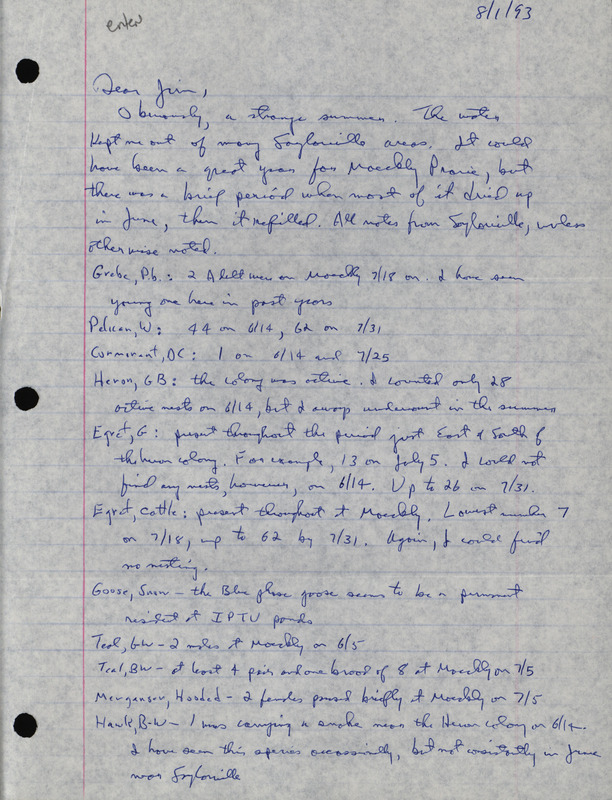 8/1/93
enter
Dear Jim,
Obviously, a strange summer. The water
kept me out of many Saylorville areas. It could
have been a great year for Moeckly Prarie, but
there was a brief period when most of it dried up
in June, then it refilled. All notes from Saylorville, unless
otherwise noted.
Grebe, P.b.: 2 Adult were on Moeckly 7/18 on. I have seen
young one here in past years
Pelican, W: 44 on 6/14, 62 on 7/31
Cormorant, DC: 1 on 6/14 and 7/25
Heron, GB: the colony was active. I counted only 28
active nests on 6/14, but I always undercount in the summer
Egret, G: present throughout the period just East & South of
the heron colony. For example, 13 on July 5. I could not
find any nests, however, on 6/14. Up to 26 on 7/31.
Egret, Cattle: present throughout at Moeckly. Lowest number 7
on 7/18, up to 62 by 7/31. Again, I could find
no nesting.
Goose, Snow - the Blue phase goose seems to be a permanent
resident at IPTV ponds
Teal, GW - 2 males at Moeckly on 6/5
Teal, BW - at least 4 pair and one brood of 8 at Moeckly on 7/5
Merganser, Hooded - 2 females paused briefly at Moeckly on 7/5
Hawk, B-W - 1 was carrying a snake near the Heron colony on 6/14.
I have seen this species occassionally, but not consistently in June
near Saylorville